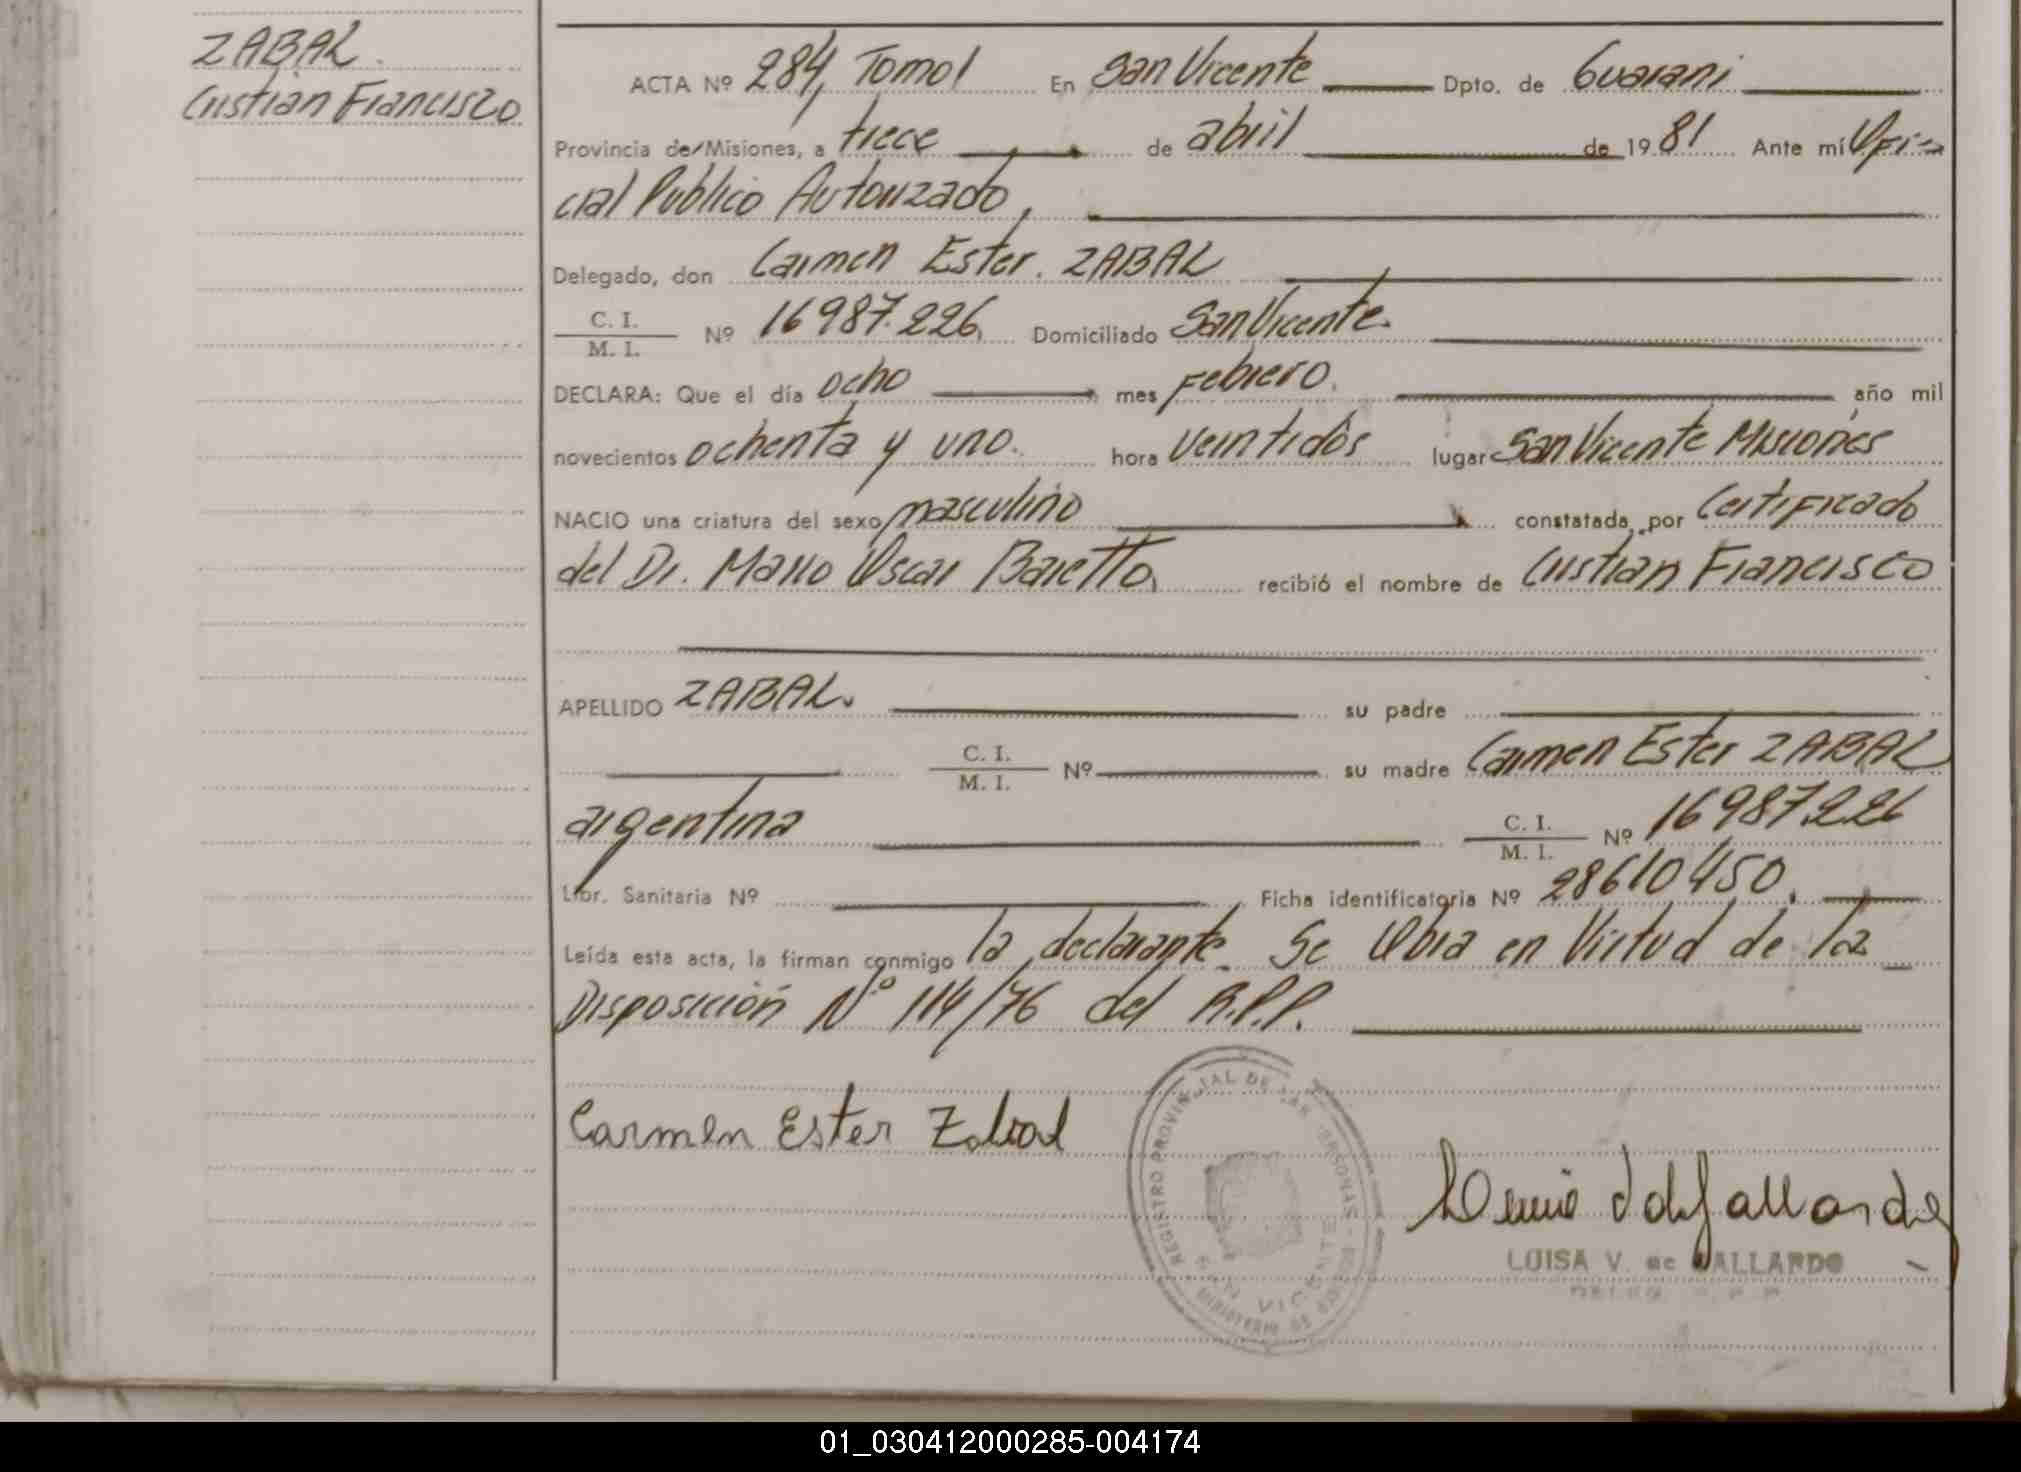 ZABAL.
Cristian Francisco
ACTA Nº 284, Tomo I En San Vicente Dpto. de Guarani
Provincia de Misiones, a trece de abril de 1981 Ante mí Ofi-
cial Público Autorizado,
Delegado, don Carmen Ester. ZABAL
C. I. / M. I. Nº 16987.226, Domiciliado San Vicente.
DECLARA: Que el día ocho mes Febrero. año mil
novecientos ochenta y uno. hora veintidós lugar San Vicente Misiones
NACIO una criatura del sexo masculino constatada por Certificado
del Dr. Mario Oscar Baretto, recibió el nombre de Cristian Francisco
APELLIDO ZABAL. su padre
C. I. / M. I. Nº su madre Carmen Ester ZABAL
argentina C. I. / M. I. Nº 16987226
Libr. Sanitaria Nº Ficha identificatoria Nº 28610450.
Leída esta acta, la firman conmigo la declarante. Se Obra en Virtud de la
Disposición Nº 114/76 del R.P.P.
Carmen Ester Zabal
REGISTRO PROVINCIAL DE LAS PERSONAS
SAN VICENTE
MINISTERIO DE
LUISA V. de GALLARDO
01_030412000285-004174